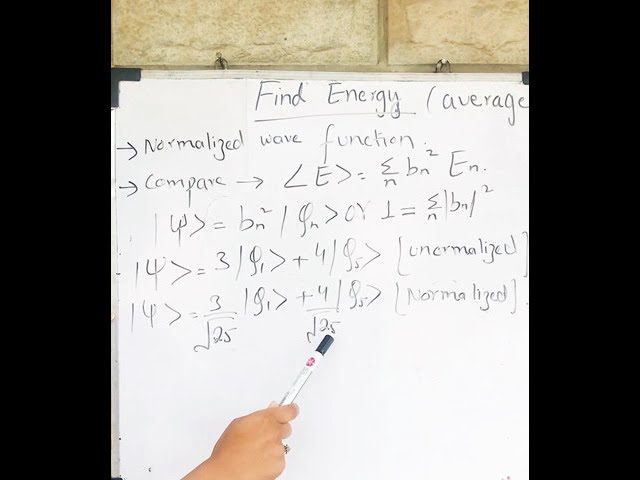 Find Energy (average
→ Normalized wave function.
→ Compare → <E> = Σn bn² En.
|Ψ> = bn² | φn> or 1 = Σn |bn|²
|Ψ> = 3 |φ1> + 4 |φ5> [unormalized]
|Ψ> = 3/√25 |φ1> + 4/√25 |φ5> [Normalized]